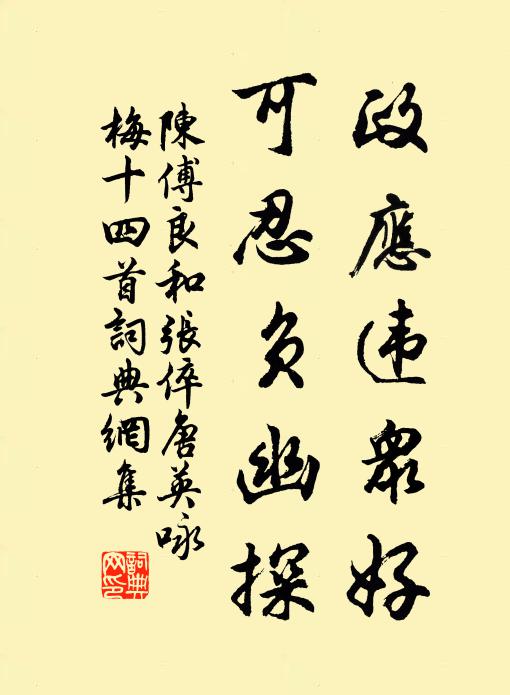 政應违眾好
可忍負幽探
陳傅良和張倅唐英咏
梅十四首詞典網集
詞典
网印